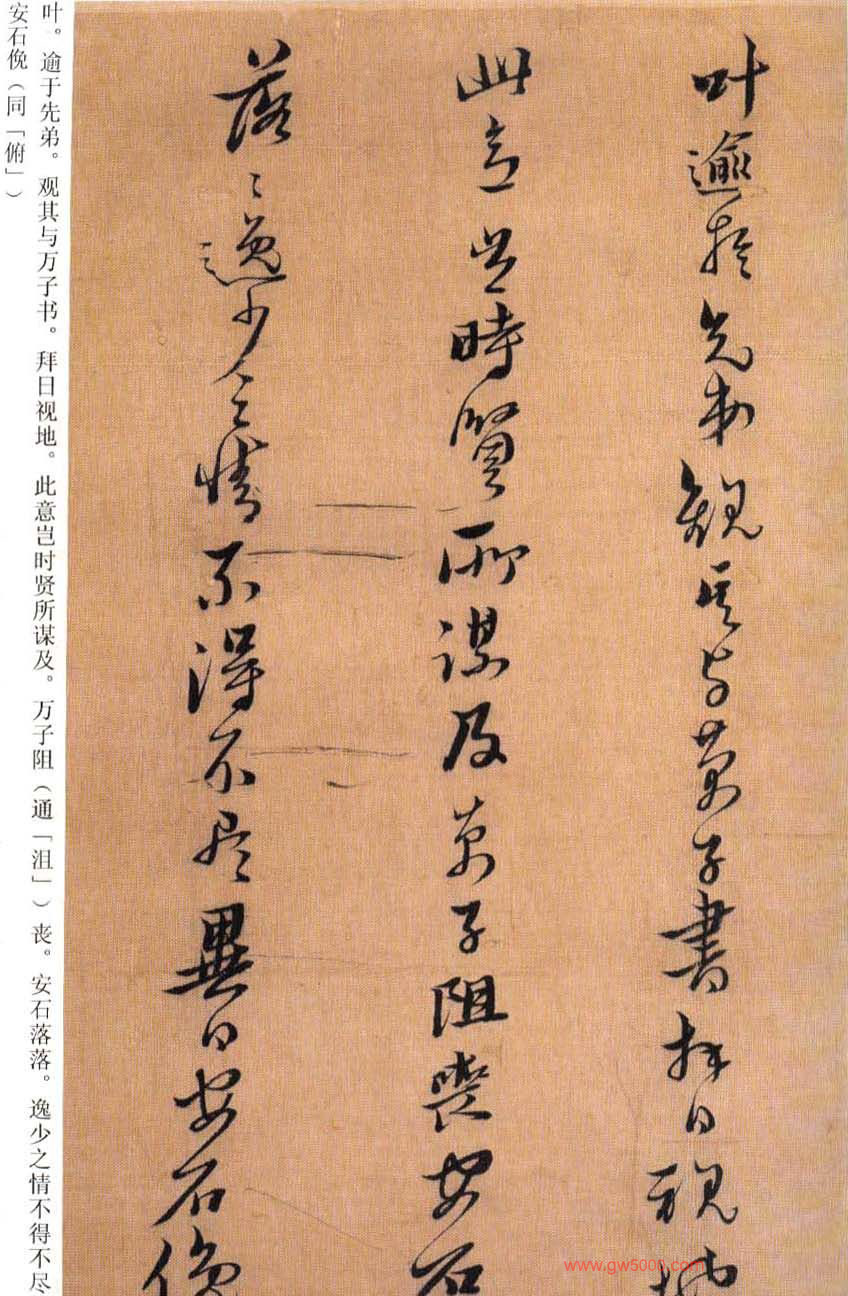 叶逾於先弟觀其与萬子書拜日視地
此意豈時賢所謀及萬子阻喪安石
落〻逸少之情不得不尽畢日安石俛
叶。逾于先弟。观其与万子书。拜日视地。此意岂时贤所谋及。万子阻（通「沮」）丧。安石落落。逸少之情不得不尽
安石俛（同「俯」）
www.gw5000.com